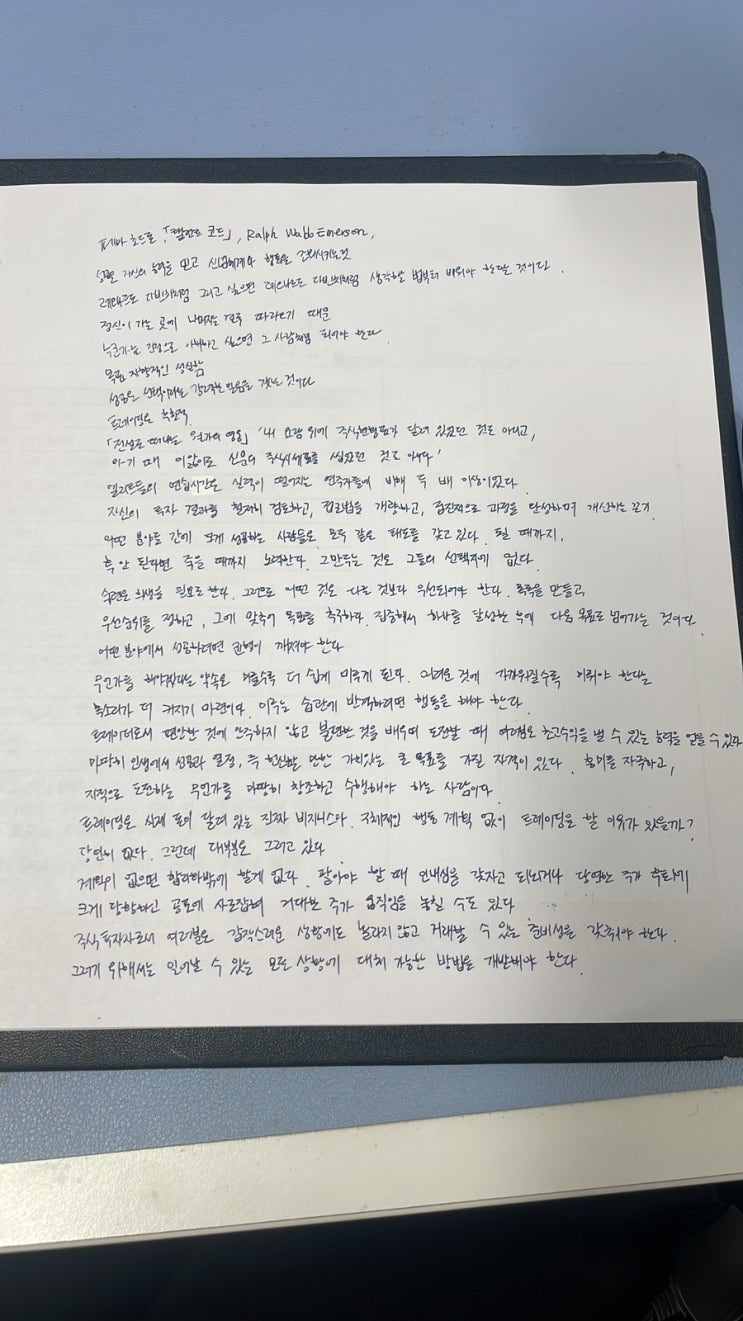 디바 초드론, 「탤런트 코드」, Ralph Waldo Emerson,
성공은 자신의 능력을 믿고 신념체계와 행동을 일치시키는것
레오나르도 다빈치처럼 그리고 싶으면 레오나르도 다빈치처럼 생각할 법부터 배워야 한다는 것이다.
정신이 가는 곳에 나머지는 결국 따라오기 때문
누군가를 진정으로 이해하고 싶으면 그 사람처럼 되어야 한다.
목표 지향적인 성실함
성공은 선택이라는 강력한 믿음을 갖는 것이다
트레이딩은 흑한색
「전설로 떠나는 월가의 영웅」 '내 요람 위에 주식현황표가 달려 있었던 것도 아니고,
아기 때 이앓이로 신문의 주식시세표를 씹었던 것도 아니다'
엘리트들의 연습시간은 실력이 떨어지는 연주자들에 비해 두 배 이상이었다.
자신의 투자 결과를 철저히 검토하고, 접근법을 개량하고, 점진적으로 과정을 달성하며 개선하는 끈기
어떤 분야를 간에 크게 성공하는 사람들은 모두 같은 태도를 갖고 있다. 될 때까지,
혹 안 된다면 죽을 때까지 노력한다. 그만두는 것은 그들의 선택지에 없다.
숙련은 희생을 필요로 한다. 그러므로 어떤 것은 다른 것보다 우선되어야 한다. 목록을 만들고
우선순위를 정하고, 그에 맞추어 목표를 추구하라. 집중해서 하나를 달성한 후에 다음 목표로 넘어가는 것이다.
어떤 분야에서 성공하려면 균형이 깨져야 한다
무언가를 해야겠다는 약속은 미룰수록 더 쉽게 미루게 된다. 어려운 것에 가까워질수록 미뤄야 한다는
목소리가 더 커지기 마련이다. 미루는 습관에 반격하려면 행동을 해야 한다.
트레이더로서 편안한 것에 안주하지 않고 불편한 것을 배우며 도전할 때 여러분은 초고수익을 낼 수 있는 능력을 얻을 수 있다
마땅히 인생에서 성공과 열정, 즉 헌신할 만한 가치있는 큰 목표를 가질 자격이 있다. 흥미를 자극하고,
지적으로 도전하는 무언가를 마땅히 창조하고 수행해야 하는 사람이다.
트레이딩은 실제 돈이 달려 있는 진짜 비지니스다. 구체적인 행동 계획 없이 트레이딩을 할 이유가 있을까?
당연히 없다. 그런데 대부분은 그러고 있다
계획이 없으면 합리화밖에 할게 없다. 팔아야 할 때 인내심을 갖자고 되뇌거나 당연한 주가 후퇴에
크게 당황하고 공포에 사로잡혀 거대한 주가 움직임을 놓칠 수도 있다
주식투자자로서 여러분은 갑작스러운 상황에도 놀라지 않고 거래할 수 있는 준비성을 갖춰야 한다.
그러기 위해서는 일어날 수 있는 모든 상황에 대처 가능한 방법을 개발해야 한다.